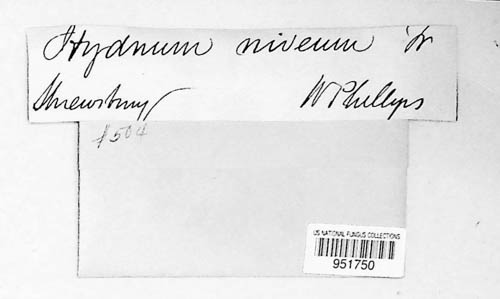 Hydnum niveum Fr
Shrewsbury
W Phillips
#504
US NATIONAL FUNGUS COLLECTIONS
951750